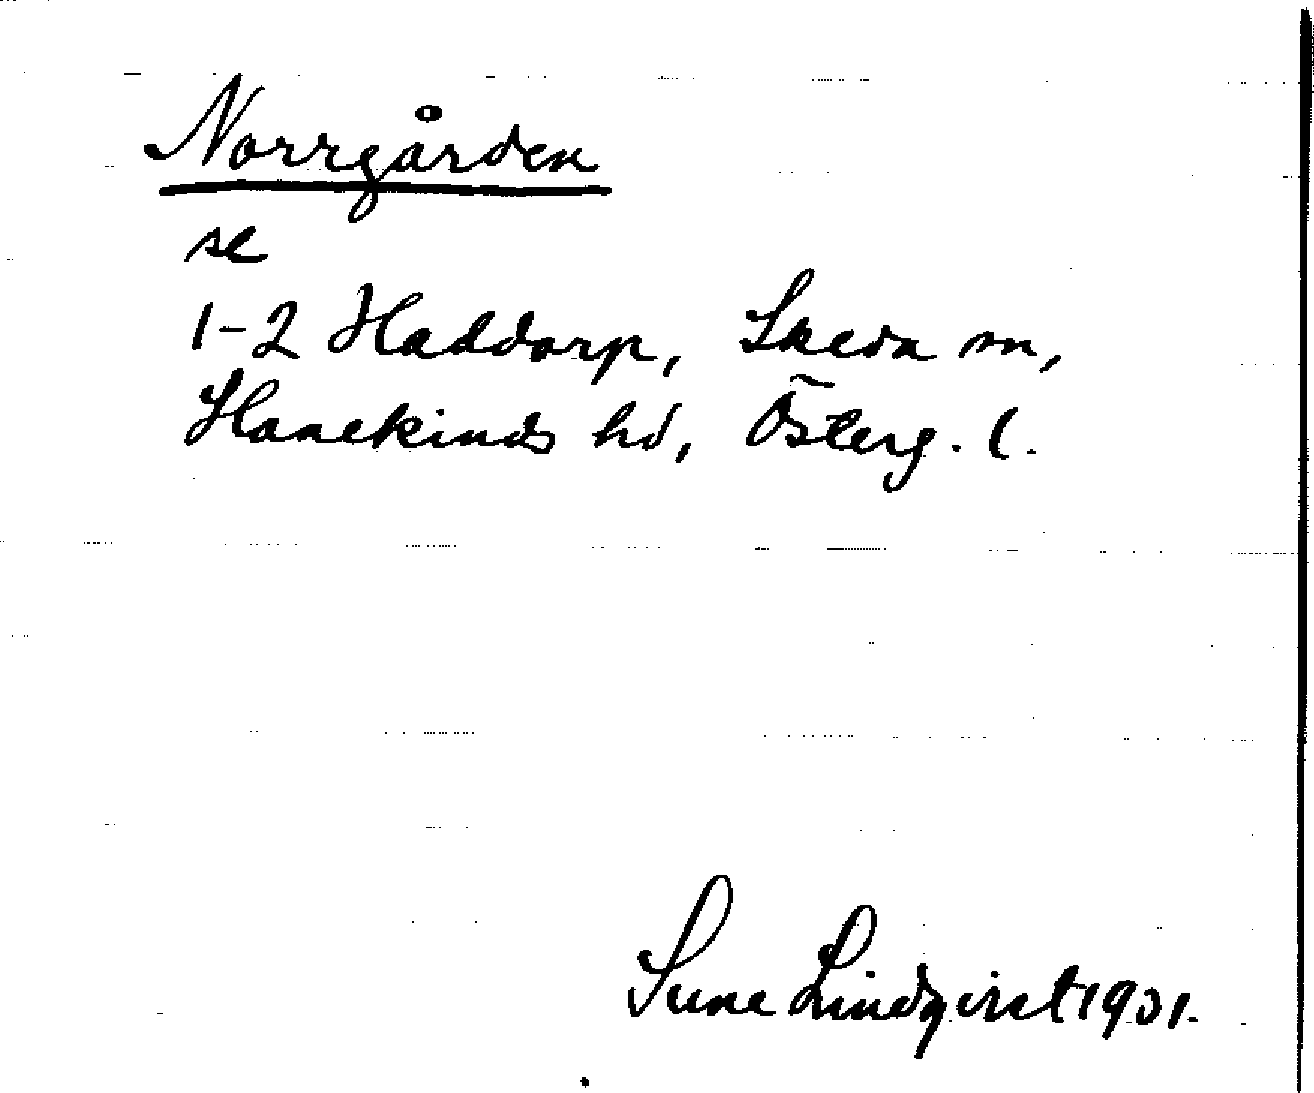 Norrgården
se
1-2 Haddorp, Skeda sn,
Hanekinds hd, Österg. l.
Sune Lindqvist 1931.